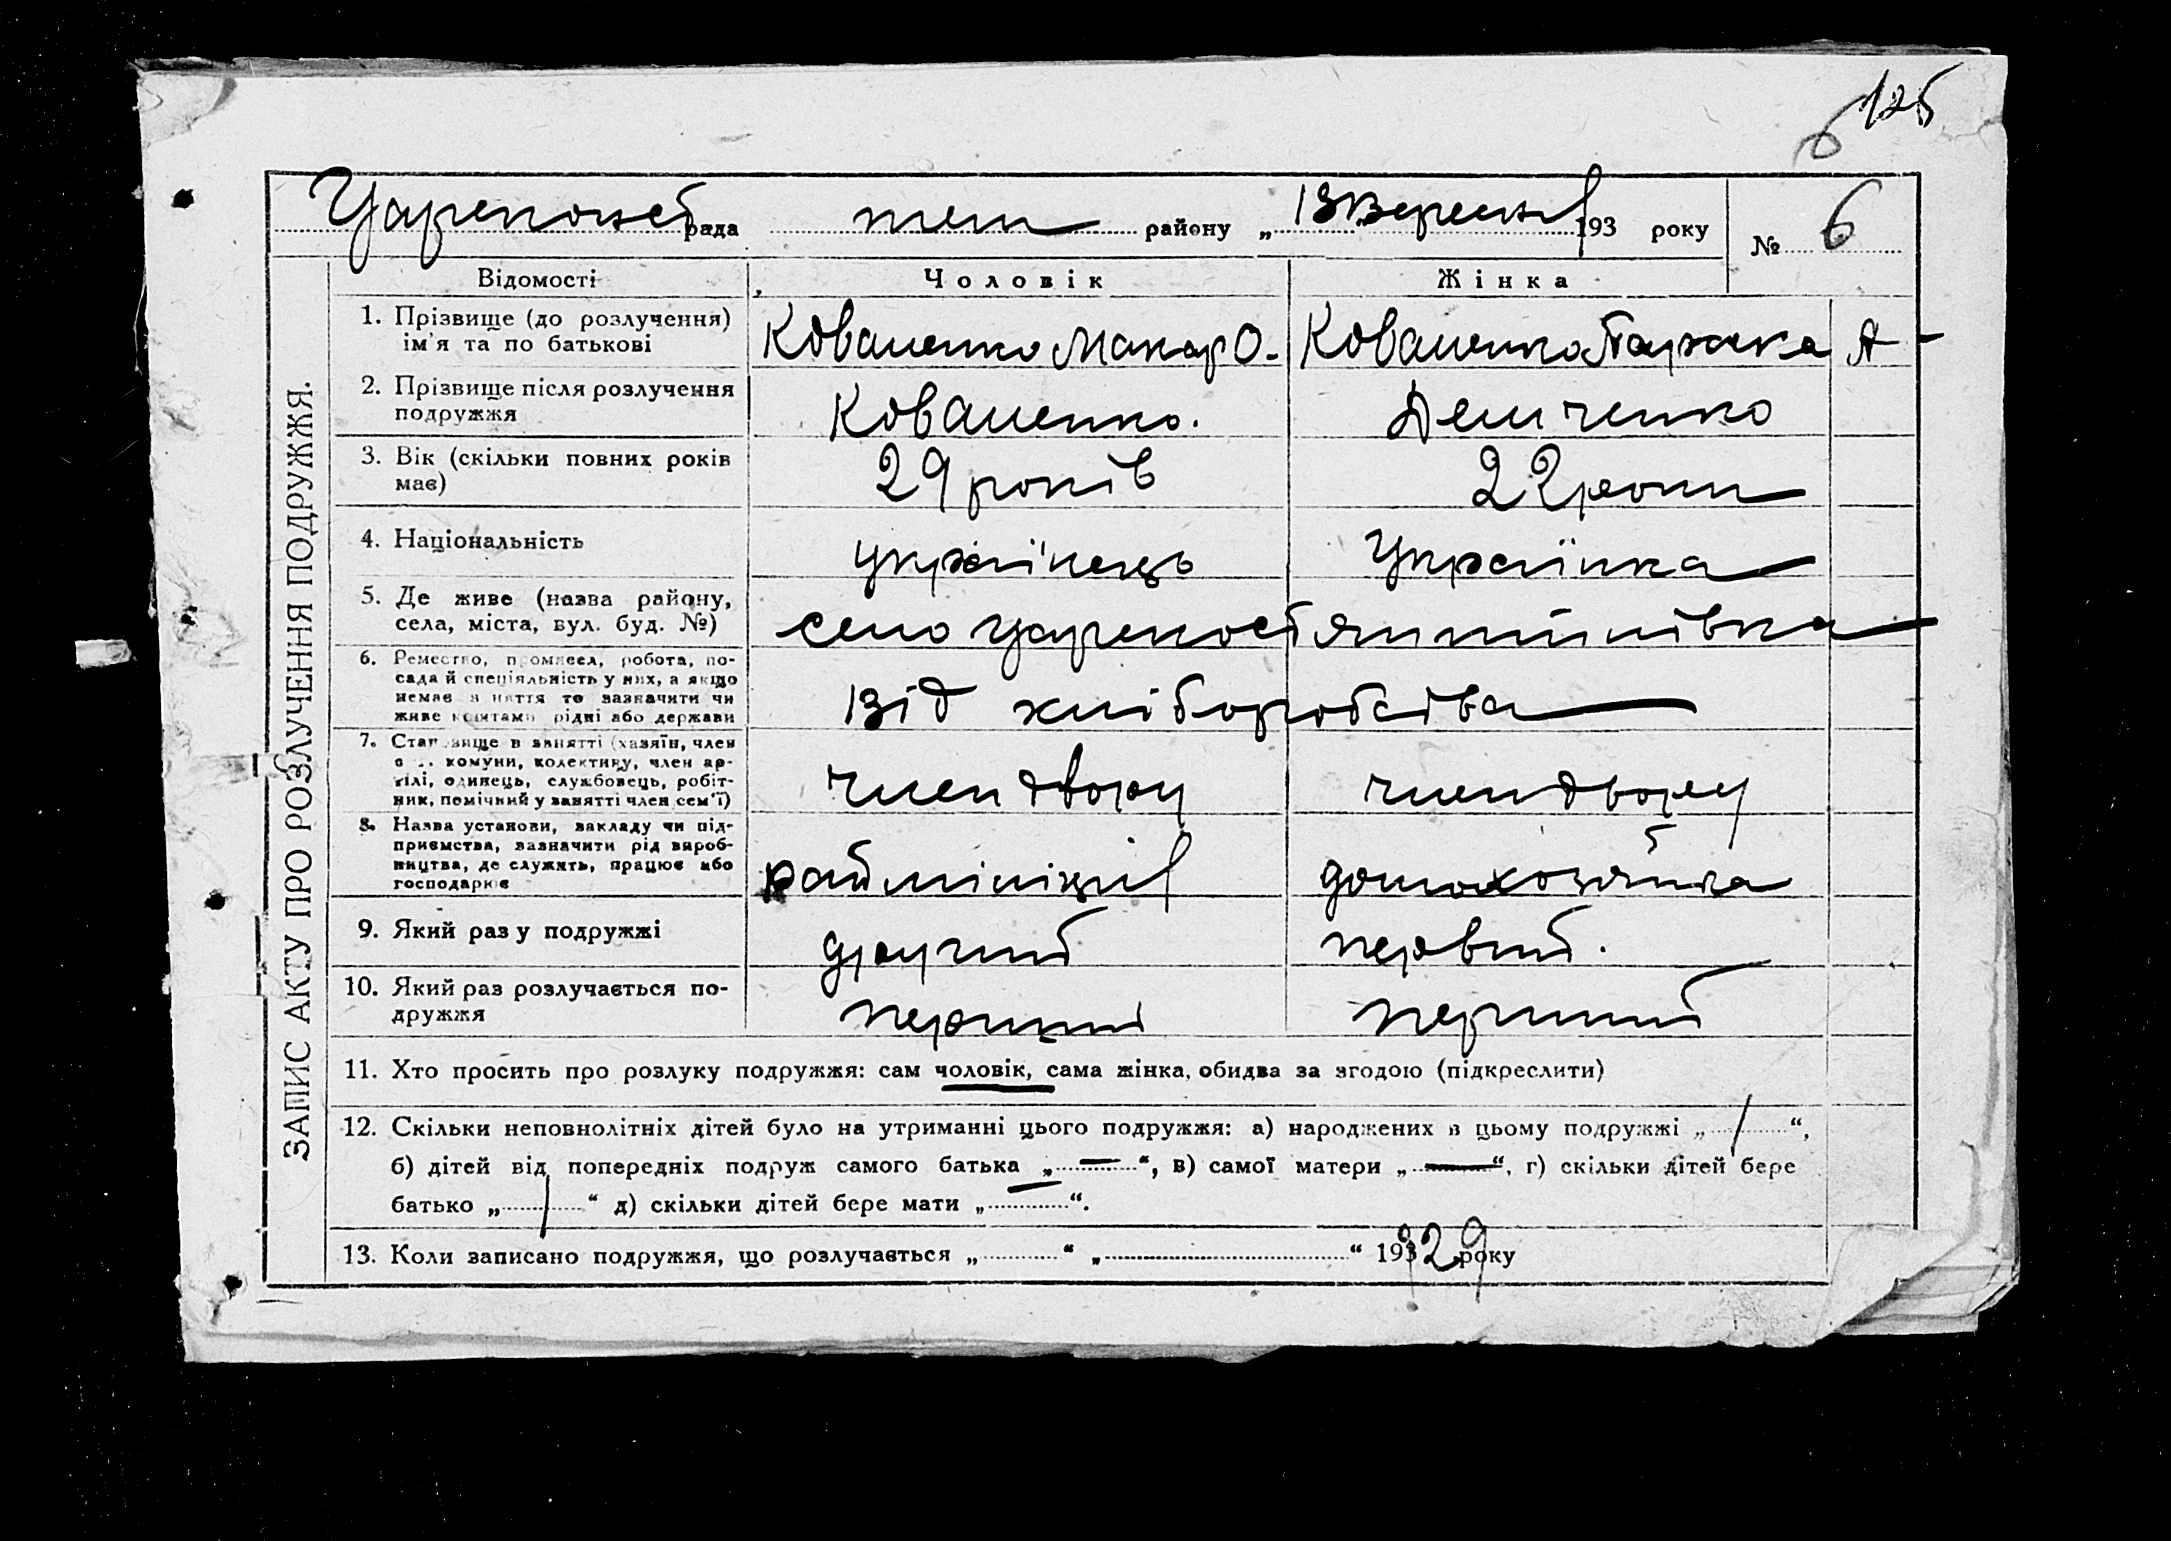 125
6
рада теж району „ 13 вересня 193 року № 6
ЗАПИС АКТУ ПРО РОЗЛУЧЕННЯ ПОДРУЖЖЯ.
Відомості Чоловік Жінка
1. Прізвище (до розлучення)
ім'я та по батькові
Коваленко Макар О. Коваленко Паражка А
2. Прізвище після розлучення
подружжя
Коваленко. Демченко
3. Вік (скільки повних років
має)
29 років 22 роки
4. Національність українець Українка
5. Де живе (назва району,
села, міста, вул. буд. №)
село
6. Ремество, промисел, робота, по-
сада й спеціяльність у них, а якщо
немає заняття то зазначити чи
живе коштами рідні або держави
Від хліборобства
7. Становище в занятті (хазяїн, член
комуни, колективу, член ар-
тілі, одинець, службовець, робіт-
ник, помічний у занятті член сем'ї)
член двору член двору
8. Назва установи, закладу чи під-
приємства, зазначити рід вироб-
ництва, де служить, працює або
господарює
райміліції домохозяйка
9. Який раз у подружжі другий первий.
10. Який раз розлучається по-
дружжя
перший перший
11. Хто просить про розлуку подружжя: сам чоловік, сама жінка, обидва за згодою (підкреслити)
12. Скільки неповнолітніх дітей було на утриманні цього подружжя: а) народжених в цьому подружжі „ 1 “,
б) дітей від попередніх подруж самого батька „ — “, в) самої матери „ — “, г) скільки дітей бере
батько „ 1 “ д) скільки дітей бере мати „ — “.
13. Коли записано подружжя, що розлучається „ “ „ “ 193 29 року